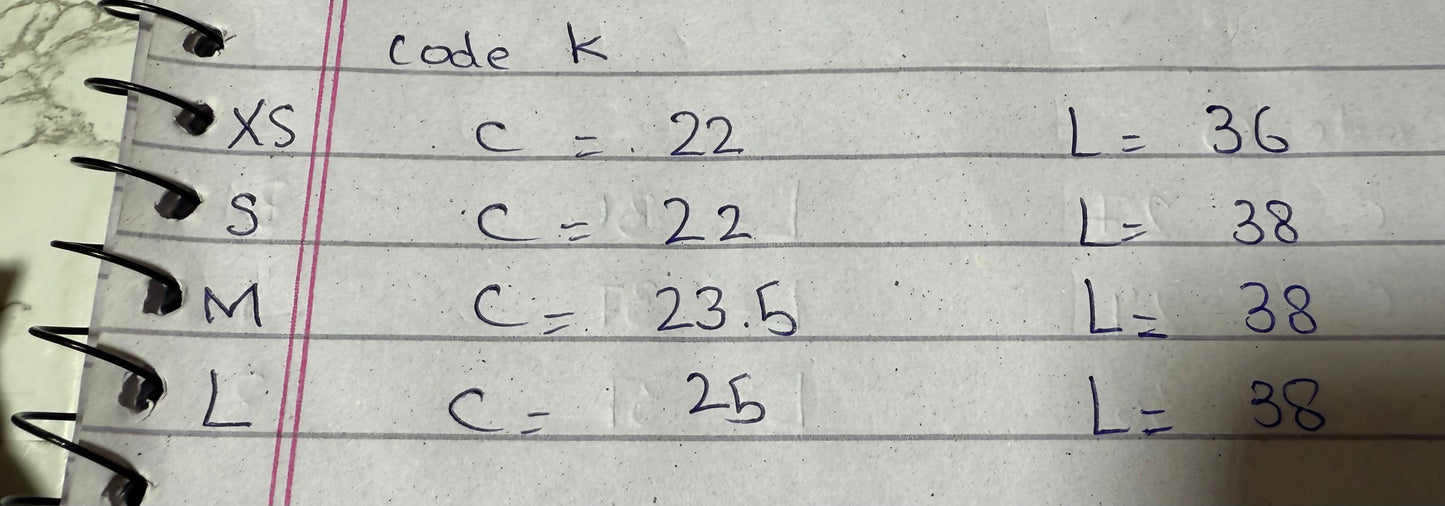 code k
XS C = 22 L = 36
S C = 22 L = 38
M C = 23.5 L = 38
L C = 25 L = 38